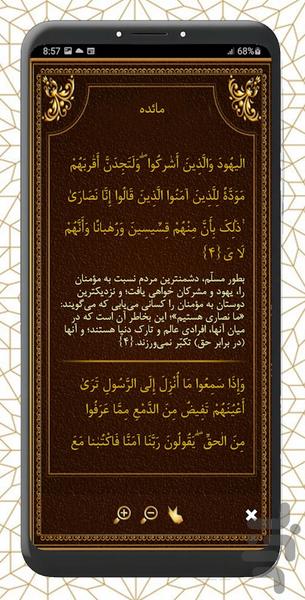 8:57
68%
مائده
الْيَهُودَ وَالَّذِينَ أَشْرَكُوا ۖ وَلَتَجِدَنَّ أَقْرَبَهُمْ
مَوَدَّةً لِلَّذِينَ آمَنُوا الَّذِينَ قَالُوا إِنَّا نَصَارَىٰ
ۚ ذَٰلِكَ بِأَنَّ مِنْهُمْ قِسِّيسِينَ وَرُهْبَانًا وَأَنَّهُمْ
لَا يَ {۴}
بطور مسلّم، دشمنترین مردم نسبت به مؤمنان
را، یهود و مشرکان خواهی یافت؛ و نزدیکترین
دوستان به مؤمنان را کسانی می‌یابی که می‌گویند:
«ما نصاری هستیم»؛ این بخاطر آن است که در
میان آنها، افرادی عالم و تارک دنیا هستند؛ و آنها
(در برابر حق) تکبّر نمی‌ورزند. {۴}
وَإِذَا سَمِعُوا مَا أُنْزِلَ إِلَى الرَّسُولِ تَرَىٰ
أَعْيُنَهُمْ تَفِيضُ مِنَ الدَّمْعِ مِمَّا عَرَفُوا
مِنَ الْحَقِّ ۖ يَقُولُونَ رَبَّنَا آمَنَّا فَاكْتُبْنَا مَعَ